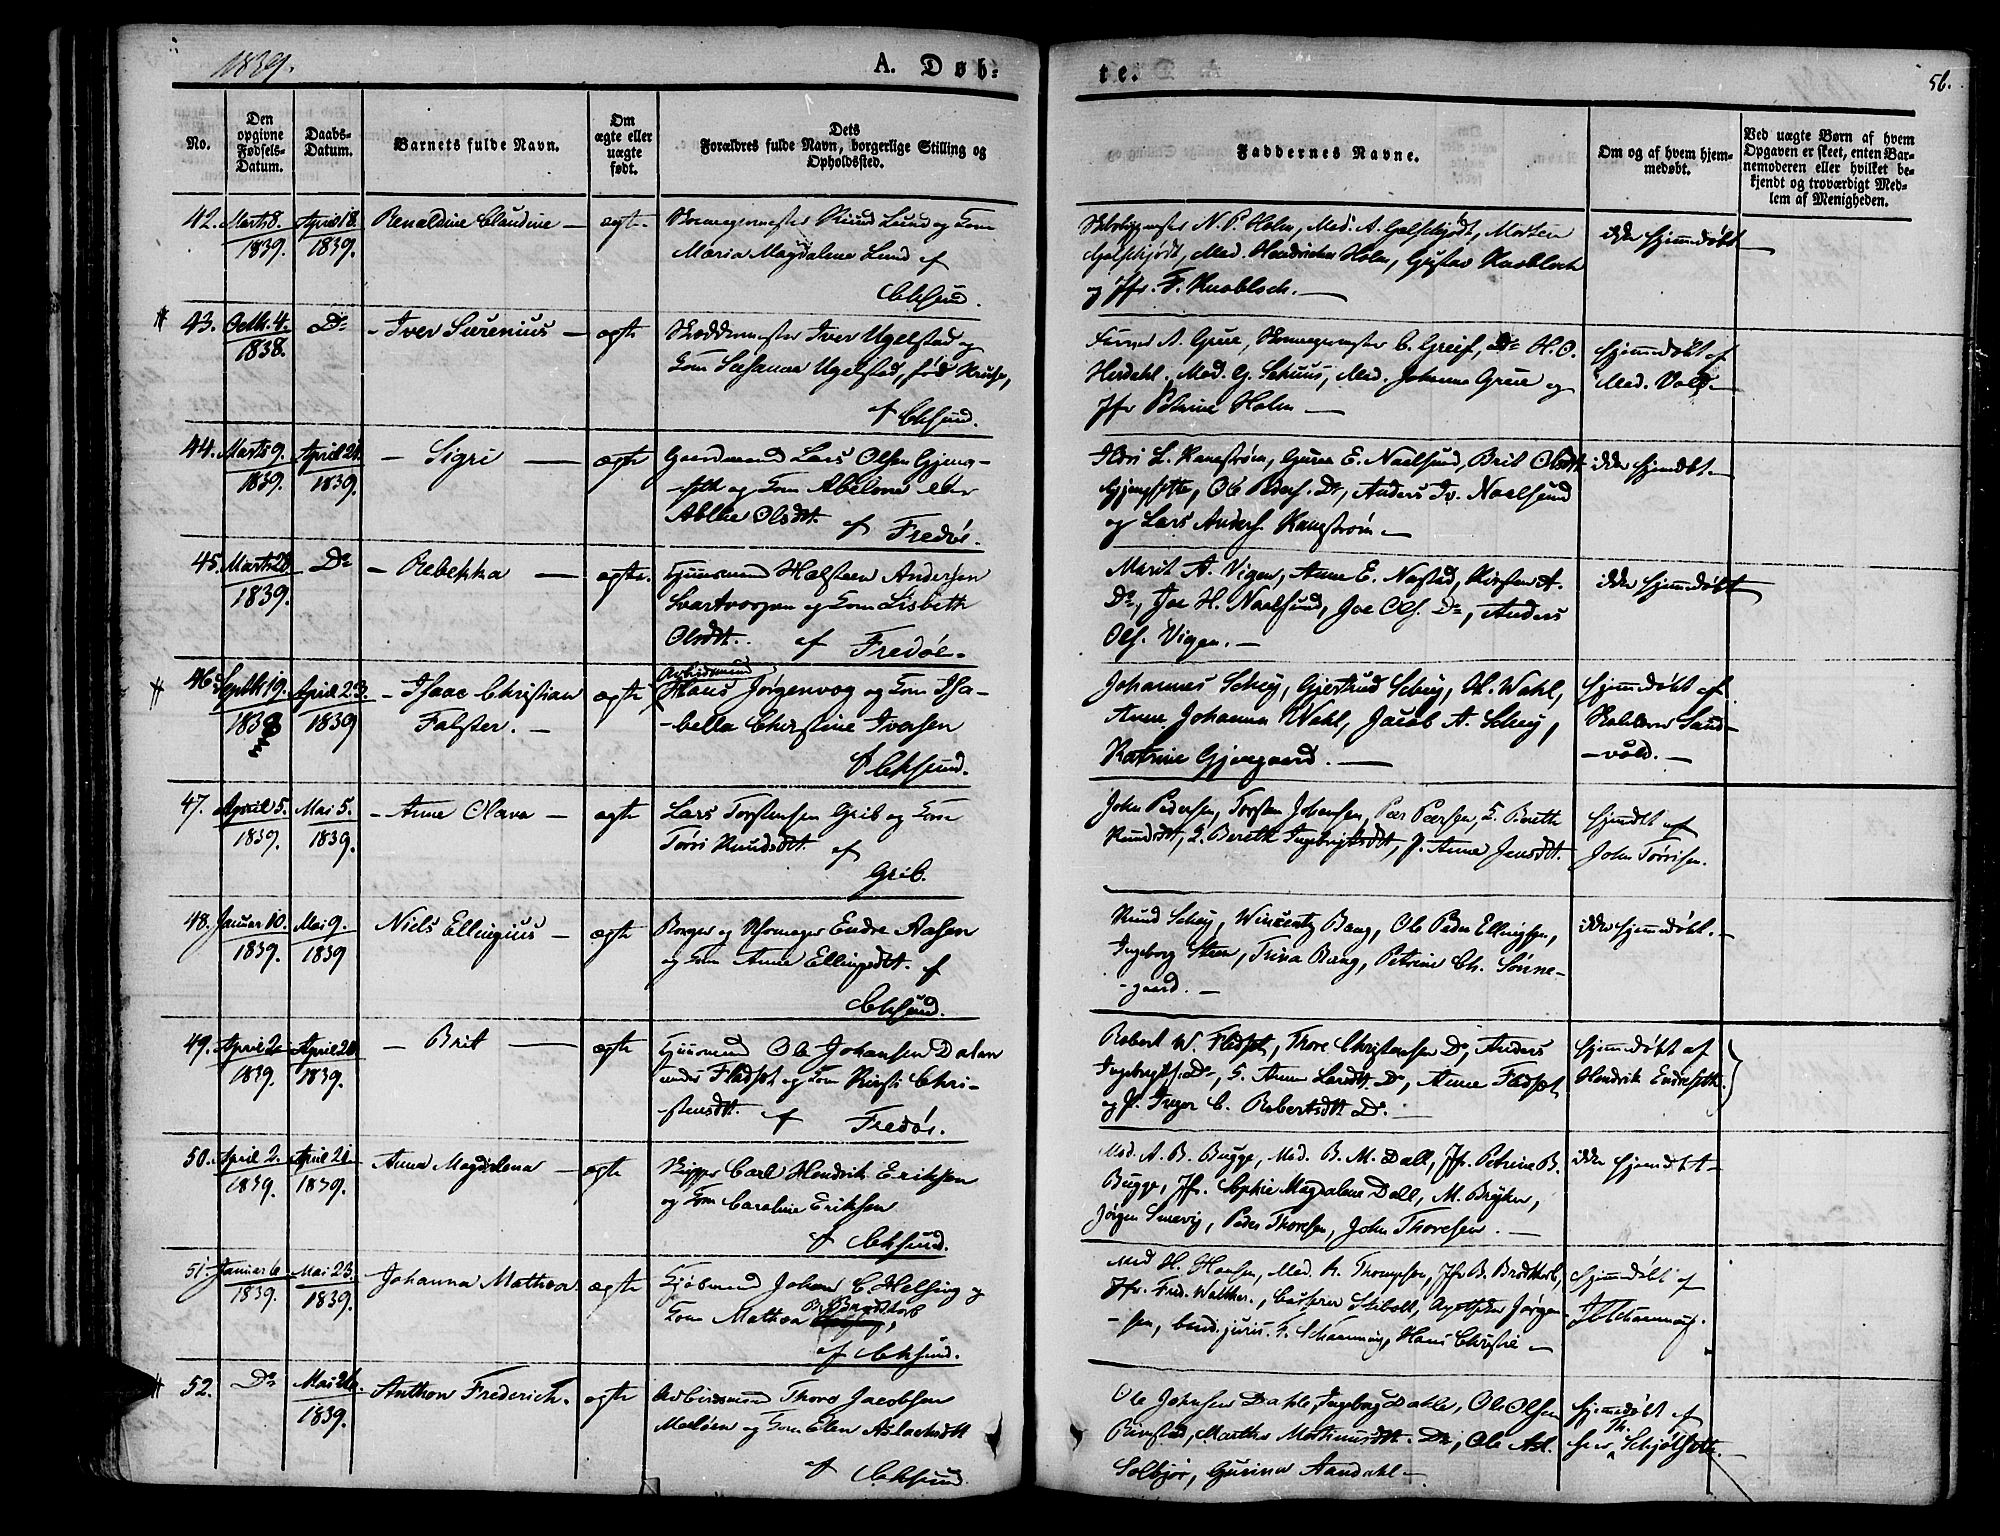 1839.
A. Døb-
te.
56.
No.
Den opgivne Fødsels-Datum.
Daabs-Datum.
Barnets fulde Navn.
Om ægte eller uægte født.
Dets Forældres fulde Navn, borgerlige Stilling og Opholdssted.
Faddernes Navne.
Om og af hvem hjem-
medøbt.
Ved uægte Børn af hvem
Opgaven er skeet, enten Bar-
nemoderen eller hvilket be-
kjendt og troværdigt Med-
lem af Menigheden.
42. Marts 8. 1839. April 18. 1839. Renaldine Claudine — ægte.
Knud Lund og Kone
Maria Magdalena Lund af
Chsund.
N. P. Holm, Mad. A. Morten
Mad. Holm, Gustav Knobloch
og Jfr. F. Knobloch. —
ikke hjemmedøbt —
43. Octb. 4. 1838. Do — Iver Surenius — ægte
Iver Ugelstad og
Kone Susanna Ugelstad, født
af Chsund.
A. Grue, C. Greif, Do H. O.
Herdahl, Mad. G. Schuus, Mad. Johanna Grue og
Jfr Petrine Holm —
hjemmedøbt af
Mad. Vold —
44. Marts 9. 1839. April 21. 1839. — Sigri — ægte
Gaardmand Lars Olsen
og Kone Abelone eller
Ablke Olsdtt. af Fredøe.
L. Ramstrøm, Guren E. Naalsund, Brit Olsdtt
Ole Peders. Do, Anders Iv. Naalsund
og Lars Anders. Ramstrøm —
ikke hjemdøbt —
45. Marts 28 1839. Do — Rebekka — ægte.
Huusmand Halsteen Andersen
Svartvogen og Kone Lisbeth
Olsdtt. af Fredøe —
Marit A. Vigen, Anne E. Nastad, Kirsten A.
Do, Joe H. Naalsund, Joe Ols. Do, Anders
Ols. Vigen. —
ikke hjemmedøbt
46. Septb. 19. 1838 April 23. 1839 — Isaac Christian
Falster. —
ægte
Arbeidsmand
Hans Jørgenvog og Kone Isa-
-bella Christine Iversen
af Chsund.
Johannes Schey, Gjertrud Schey, H. Wahl,
Anne Johanna Wahl, Jacob A. Schey,
Katrine Gjengaard. —
hjemmedøbt af
Sand-
-vold. —
47. April 5. 1839. Mai 5. 1839. — Anne Olava — ægte
Lars Torstensen Grib og Kone
Tørri Knudsdtt. af
Grib.
John Pedersen, Torsten Johansen, Peer Peersen, G. Berethe
Knudsdtt, G. Berethe Ingebrigtsdtt, P. Anne Jensdtt.
hjemdt af
John Tørrisen.
48. Januar 10. 1839. Mai 9. 1839 Niels Ellingius — ægte
Borger og Endre Aasen
og Kone Anne Ellingsdtt. af
Chsund.
Knud Schey, Wincentz Bang, Ole Peder Ellingsen,
Ingeborg Steen, Trina Bang, Petrine Ch. Sønne-
-gaard. —
ikke hjemmedøbt. —
49. April 2. 1839. April 21 1839. — Brit — ægte
Huusmand Ole Johansen Dalen
under Fladset og Kone Kirsti Chri-
-stensdtt. af Fredøe.
Robert W. Fladset, Thore Christensen Do, Anders
Ingebrigts. Do, G. Anne Larsdtt. Do, Anne Fladset
og P. Inger C. Robertsdtt Do. —
hjemmedøbt af
Hendrik Endresett.
50. April 2. 1839. April 21 1839. Anna Magdalena — ægte
Skipper Carl Hendrik Eriksen
og Kone Caroline Eriksen
af Chsund.
Mad. A. B. Bugge, Mad. B. M. Dall, Jfr. Petrine B.
Bugge, Jfr. Sophie Magdalene Dall, M. Bryhn,
Jørgen Smevig, Peder Thoresen, John Thoresen. —
ikke hjemdt —
51. Januar 6. 1839. Mai 23. 1839. Johanna Mathea. ægte
Kjøbmand Johan C. Helsing og
Kone Mathea B. Brodtkorb,
af Chsund.
Mad H. Hansen, Mad. R. Thompson, Jfr B. Brodtkorb,
Jfr. Fred. Walther., Casserer Skibolt, Apotheker Jørgen-
-sen, cand. juris. F. Schanning, Hans Christie —
hjemmedøbt af
Schanning.
52. Do Mai 26. 1839. Anthon Frederich. ægte
Arbeidsmand Thore Jacobsen
Meløen og Kone Elen Aslachsdtt
af Chsund.
Ole Johnsen Dahle, Ingeborg Dahle, Ole Olsen
Rimstad, Marthe Mortinusdtt. Do, Ole Ad.
Solbjør, Gurina Aandahl —
hjemmedøbt af
Th.